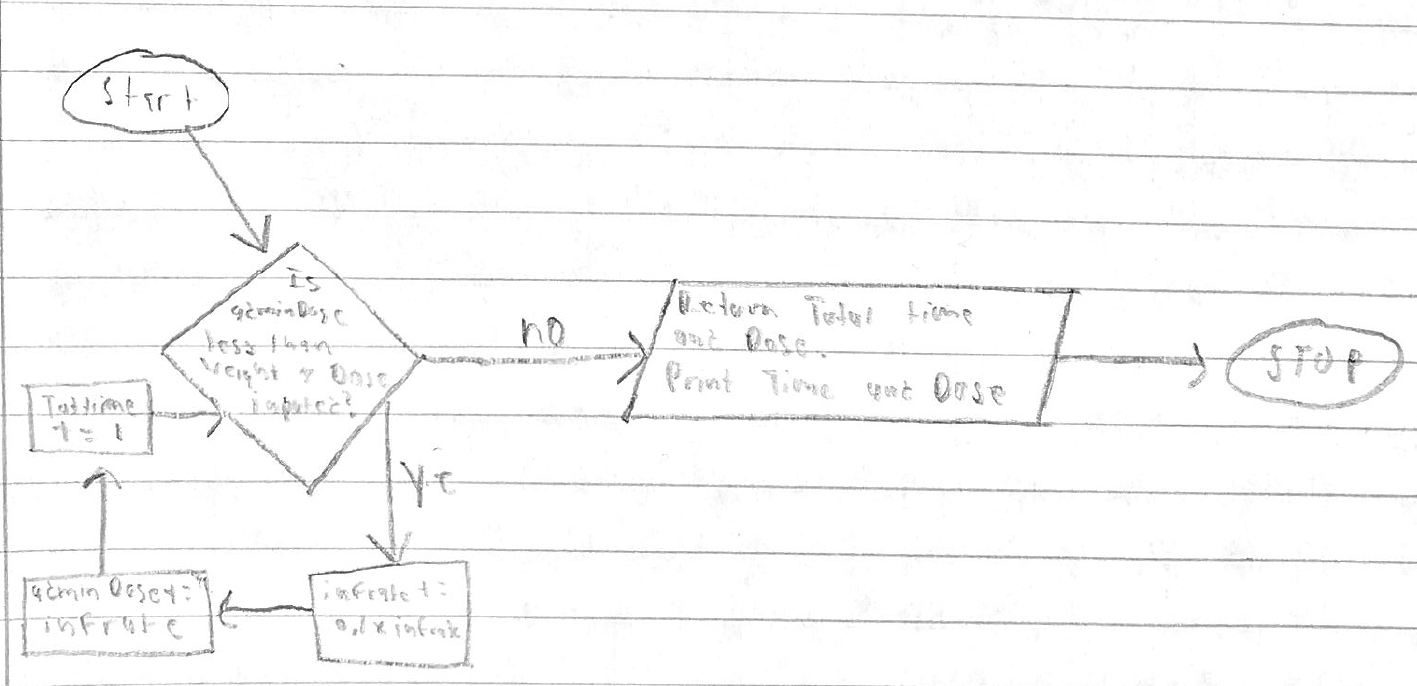 Start
Is
adminDose
less than
weight * Dose
inputed?
no
Return Total time
and Dose.
Print Time and Dose
STOP
Tottime
+= 1
adminDose+=
infrate
infrate+=
0.1*infrate